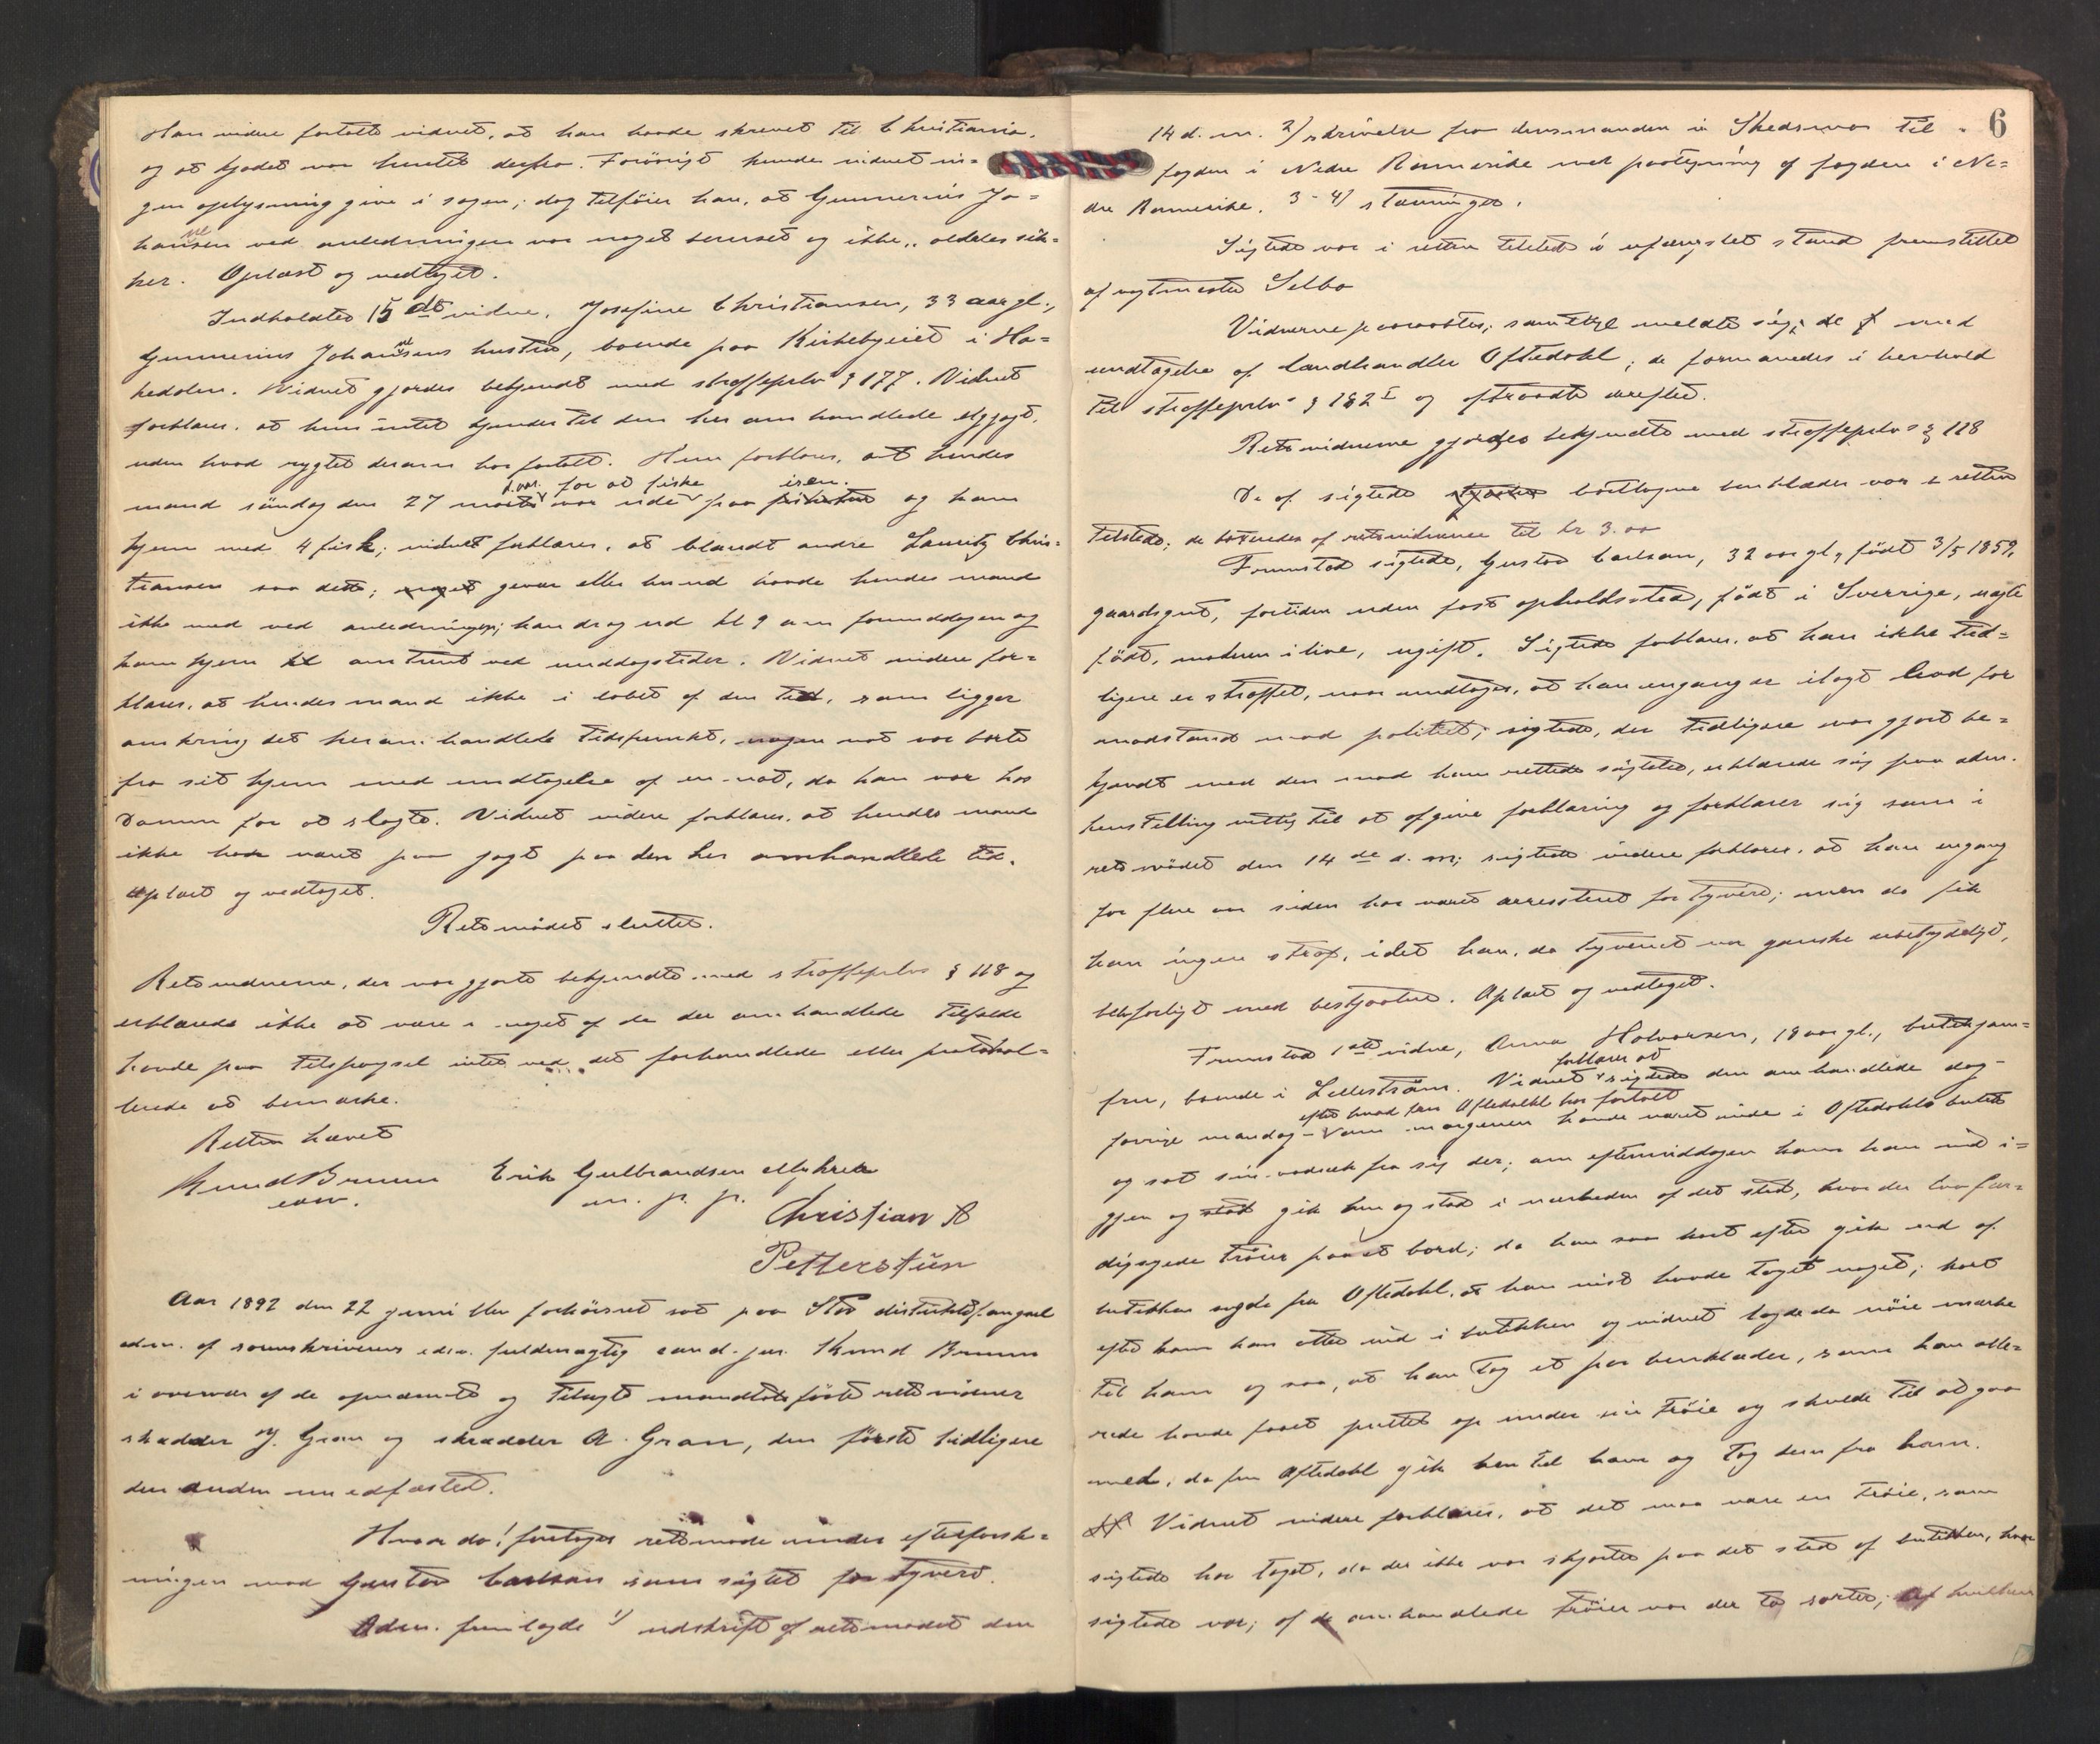 Han videre fortalte vidnet, at han havde skrevet til Christiania,
og at kjødet var hentet derfra. Forøvrigt kunde vidnet in-
gen oplysning give i sagen; dog tilføier han, at Gunnerius Jo-
hansen ved anledningen var noget beruset og ikke aldeles sik-
ker. Oplæst og vedtaget.
Indkaldtes 15 de vidne, Josefine Christiansen, 33 aar gl.,
Gunnerius Johansens hustru, boende paa Kirkebyeiet i Ha-
kedalen. Vidnet gjordes bekjendt med straffeprlv § 177. Vidnet
forklarer, at hun intet kjender til den her omhandlede elgjagt,
uden hvad rygtet derom har fortalt. Hun forklarer, at hendes
d. aar. for at fiske isen.
mand søndag den 27 marts var ude paa og kom
hjem med 4 fisk; vidnet forklarer, at blandt andre Lauritz Chris-
tiansen saa dette; noget gevær eller hund havde hendes mand
ikke med ved anledningen; han drog ud kl 9 om formiddagen og
kom hjem kl omtrent ved middagstider. Vidnet videre for-
klarer, at hendes mand ikke i løbet af den tid, som ligger
omkring det her omhandlede tidspunkt, nogen nat var borte
fra sit hjem med undtagelse af en nat, da han var hos
Damm for at slagte. Vidnet videre forklarer, at hendes mand
ikke har været paa jagt paa den her omhandlede tid.
Oplæst og vedtaget.
Retsmødet sluttet.
Retsvidnerne, der var gjorte bekjendte med straffeprlvs § 118 og
erklærede ikke at være i noget af de der omhandlede tilfælde
havde paa tilspørgsel intet ved det forhandlede eller protokol-
lerede at bemærke.
Retten hævet
Knud Bruun Erik Gulbrandsen Myhrer
con. m. p. p.
Christian A
Petterstuen
Aar 1892 den 22 juni blev forhørsret sat paa distriktsfængsel
adm. af sorenskriverens edsv. fuldmægtig cand. jur. Knud Bruun
i overvær af de opnævnte og tilsagte mandtalsførte retsvidner
skrædder J. Gran og skrædder A. Gran, den første tidligere
den anden nu edfæstet.
Hvor da! foretoges retsmøde under efterforsk-
ningen mod Gustav Carlson som sigtet for tyveri.
Adm. fremlagde 1/ udskrift af retsmødet den
6
14 d. m. 2/ skrivelse fra lensmanden i Skedsmo til
fogden i Nedre Romerike med paategning af fogden i Ne-
dre Romerike. 3-4/ stævninger.
Sigtede var i retten tilstede i ufængslet stand fremstillet
af vagtmester Selbo
Vidnerne paaraabtes; samtlige meldte sig; de f med
undtagelse af landhandler Oftedahl; de formanedes i henhold
til straffeprlvs § 182 I og aftraadte derefter.
Retsvidnerne gjordes bekjendte med straffeprlvs § 118
De af sigtede borttagne benklæder var i retten
tilstede; de taxeredes af retsvidnerne til kr 3.00
Fremstod sigtede, Gustav Carlson, 32 aar gl., født 3/5 1859,
gaardsgut, fortiden uden fast opholdssted, født i Sverrige, uægte
født, moderen i live, ugift. Sigtede forklarer, at han ikke tid-
ligere er straffet, naar undtages, at han engang er ilagt bod for
modstand mod politiet; sigtede, der tidligere var gjort be-
kjendt med den mod ham rettede sigtelse, erklærede sig paa adm.
henstilling villig til at afgive forklaring og forklarer sig som i
retsmødet den 14 de d. m; sigtede videre forklarer, at han engang
for flere aar siden har været arresteret for tyveri; men da fik
han ingen straf, idet han, da tyveriet var ganske ubetydeligt,
blev forligt med bestjaalne. Oplæst og vedtaget.
Fremstod 1ste vidne, Anna Halvorsen, 18 aar gl., butikjom-
fru, boende i Lillestrøm. Vidnet forklarer at sigtede den omhandlede dag -
efter hvad fru Oftedahl har fortalt
forrige mandag - om morgenen havde været inde i Oftedahls butik
og sat sin vadsæk fra sig der; om eftermiddagen kom han ind i-
gjen og gik hen og stod i nærheden af det sted, hvor der laa fær-
digsyede trøier paa et bord; da han saa kort efter gik ud af
butikken sagde fru Oftedahl, at han vist havde taget noget; kort
efter kom han atter ind i butikken og vidnet lagde da nøie mærke
til ham og saa, at han tog et par benklæder, som han alle-
rede havde faaet puttet op under sin trøie og skulde til at gaa
med, da fru Oftedahl gik hen til ham og tog dem fra ham.
Vidnet videre forklarer, at det maa være en trøie, som
sigtede har taget, da der ikke var skjorter paa det sted af butikken, hvor
sigtede var; af de omhandlede trøier var der to sorter; af hvilken